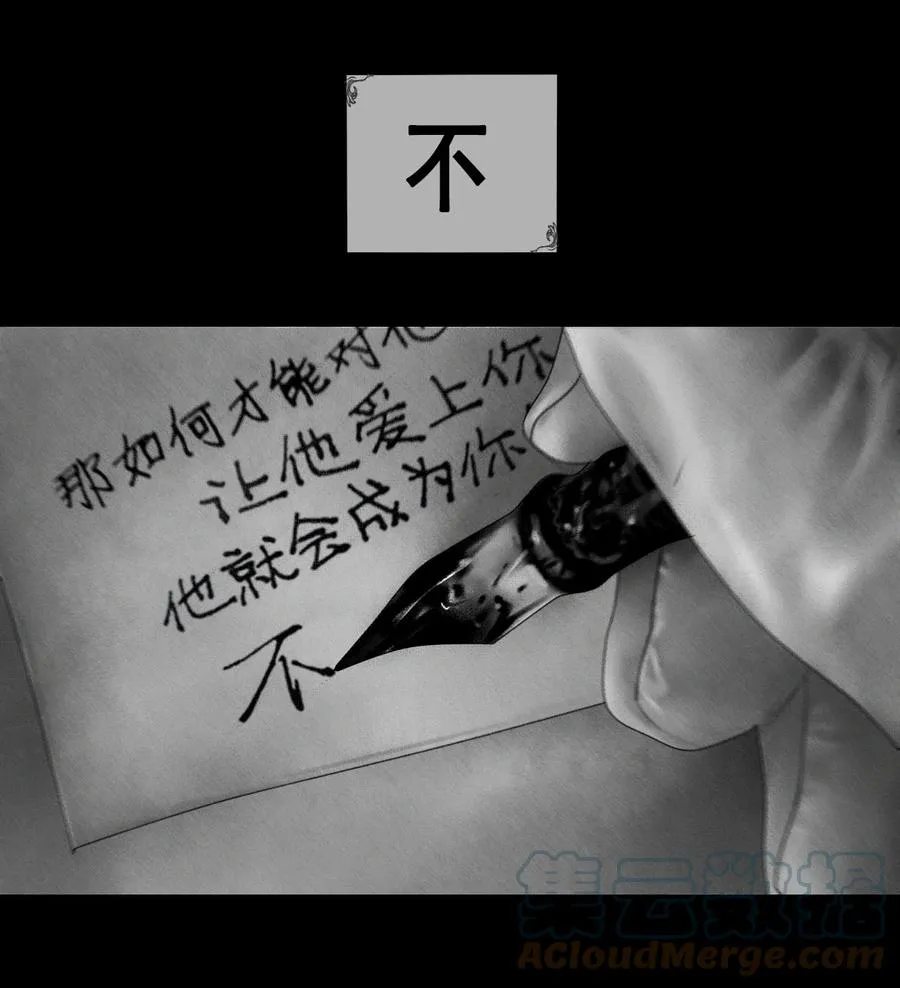 不
那如何才能对他
让他爱上你
他就会成为你
不
集云数据
ACloudMerge.com